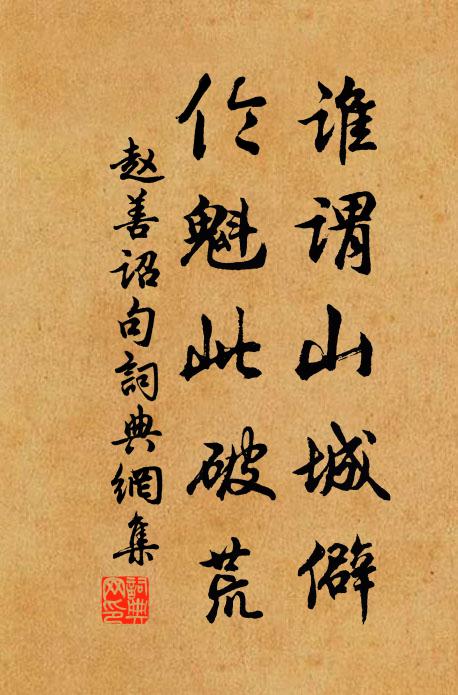 谁谓山城僻
伦魁此破荒
赵善诏句詞典網集
詞典
网印